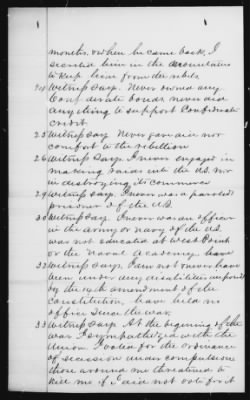 months. & when he came back, I
secreted him in the mountains
to keep him from the rebels
24 Witness says. Never owned any
Confederate bonds, never did
anything to support Confederate
credit.
25 Witness says Never gave aid nor
comfort to the rebellion
26 Witness Says. I never engaged in
making raids into the U.S. nor
in destroying its commerce
29 Witness says. I never was a paroled
prisoner of the U.S.
30 Witness says. I never was an officer
in the army or navy of the U.S.
was not educated at West Point
or the Naval Academy
32 Witness says. I am not now & have
been under any disabilities imposed
by the 14th amendment of the
constitution, have held no
office since the war.
33 Witness says At the beginning of the
war I sympathized with the
Union. I voted for the ordinance
of secession under compulsion
those around me threatened to
kill me if I did not vote for it